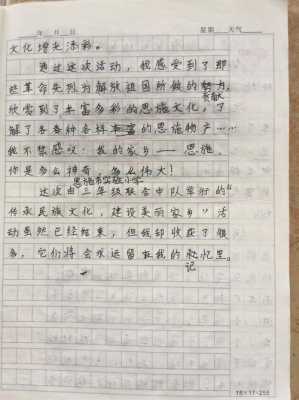 年 月 日 星期 天气
文化增光添彩。
通过这次活动，我感受到了那
些革命先烈为解放祖国所做的贡献，
欣赏到了丰富多彩的恩施文化，了
解了各种各样的恩施物产……
我不禁感叹：我的家乡——恩施，
你是多么神奇、多么伟大！
恩施市实验小学
这次由三年级联合中队举行的“
传承民族文化，建设美丽家乡”活
动虽然已经结束，但我却收获了很
多，它们将会永远留在我的记忆里。
18×17=255